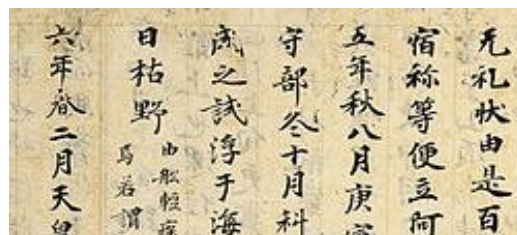 无礼状由是百
宿祢等便立阿
五年秋八月庚寅
守部冬十月科
成之試浮于海
曰枯野
由舩輕疾
焉若謂
六年春二月天皇